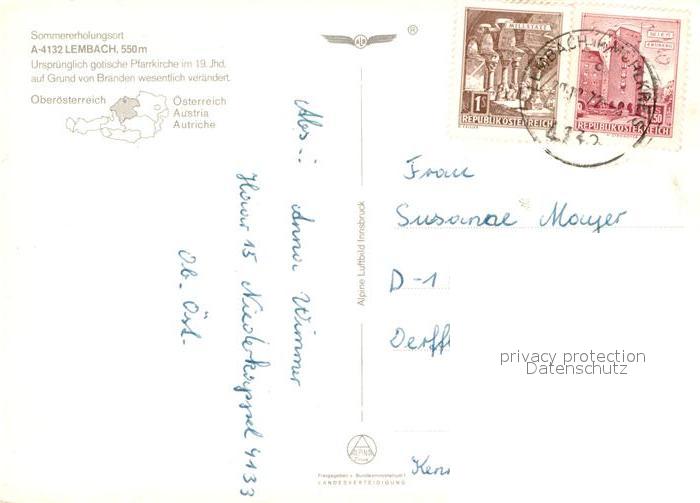 Sommererholungsort
A-4132 LEMBACH, 550m
Ursprünglich gotische Pfarrkirche im 19. Jhd.
auf Grund von Bränden wesentlich verändert.
Oberösterreich
Österreich
Austria
Autriche
®
MILLSTATT
1S
REPUBLIK ÖSTERREICH
REPUBLIK ÖSTERREICH
4132
Abs.: Anna Wimmer
Haar 15 Niederkappel 4133
Ob. Öst.
Alpine Luftbild Innsbruck
Frau
Susanne Mayer
D-1
Derffl
privacy protection
Datenschutz
Ken
ALPINE
Freigegeben v. Bundesministerium f.
LANDESVERTEIDIGUNG